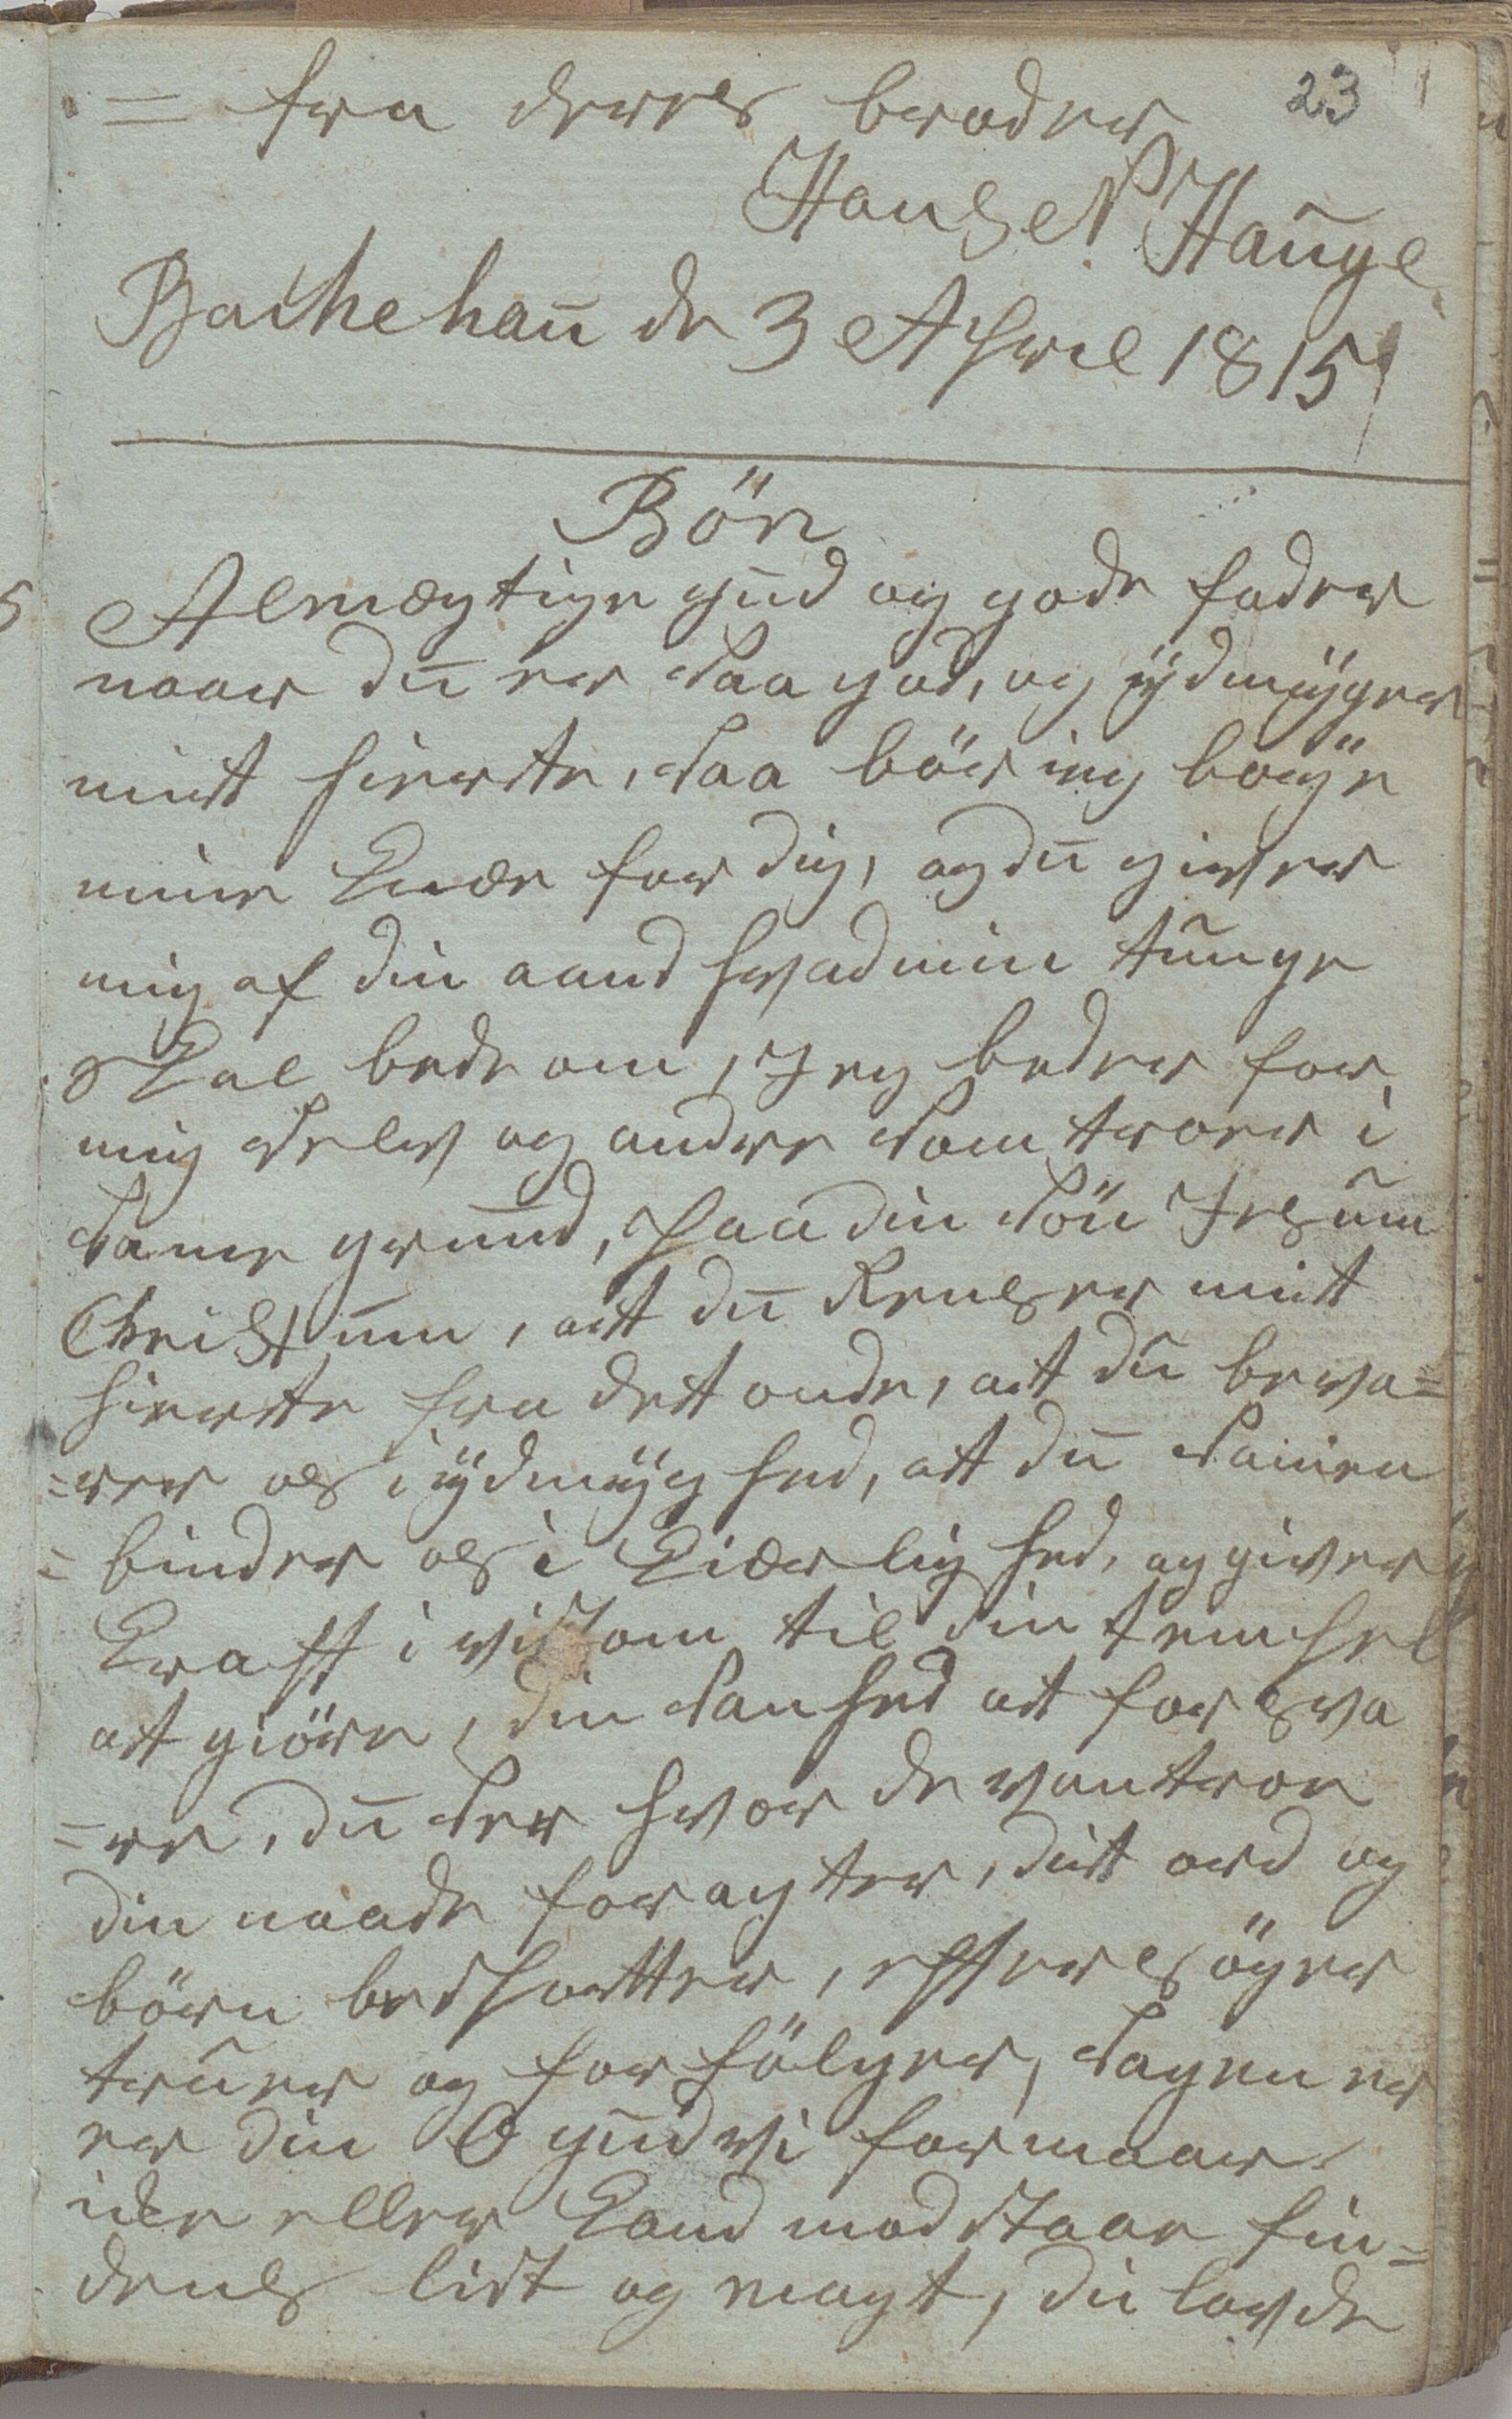 23
= fra deres broder
Hans N Hauge
Bachehaug de 3 April 1815
Bön
Almægtige gud og gode fader
naar du er saa god, og ÿdmÿger
mit hierte, saa bör ieg böÿe
mine knæe for dig, og du giver
mig af din aand hvad min tunge
skal bede om, Jeg beder for
mig selv og andre som troer i
same grund, paa din sön Jesum
Christum, att du Renser mit
hierte fra det onde, at du beva=
=rer os i ÿdmÿghed, att du samen
=binder os i kiærlighed, og giver
kraft i visdom til din tempel
att giöre, din sanhed at forsva
=re, du seer hvor de vantroe
din naade foragter, ditt ord og
börn bespotter, eftersöger
truer og forfölger, sagen er
er din O gud vi formaar
icke eller kand modstaae fin=
dens list og magt, du lovde